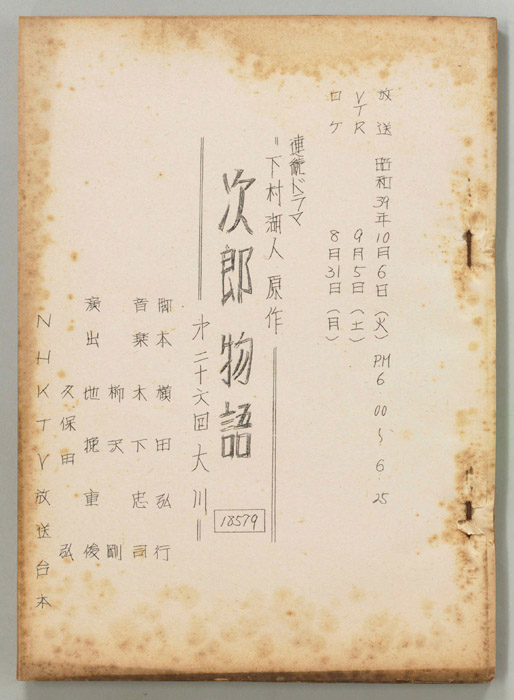 放送 昭和39年10月6日(火) P.M 6.00~6.25
VTR 9月5日(土)
ロケ 8月31日(月)
連続ドラマ
"下村湖人 原作
次郎物語
第二十六回 大川"
18579
脚本 横田弘行
音楽 木下忠司
柳沢 剛
演出 地挽重俊
久保田 弘
NHKTV放送台本